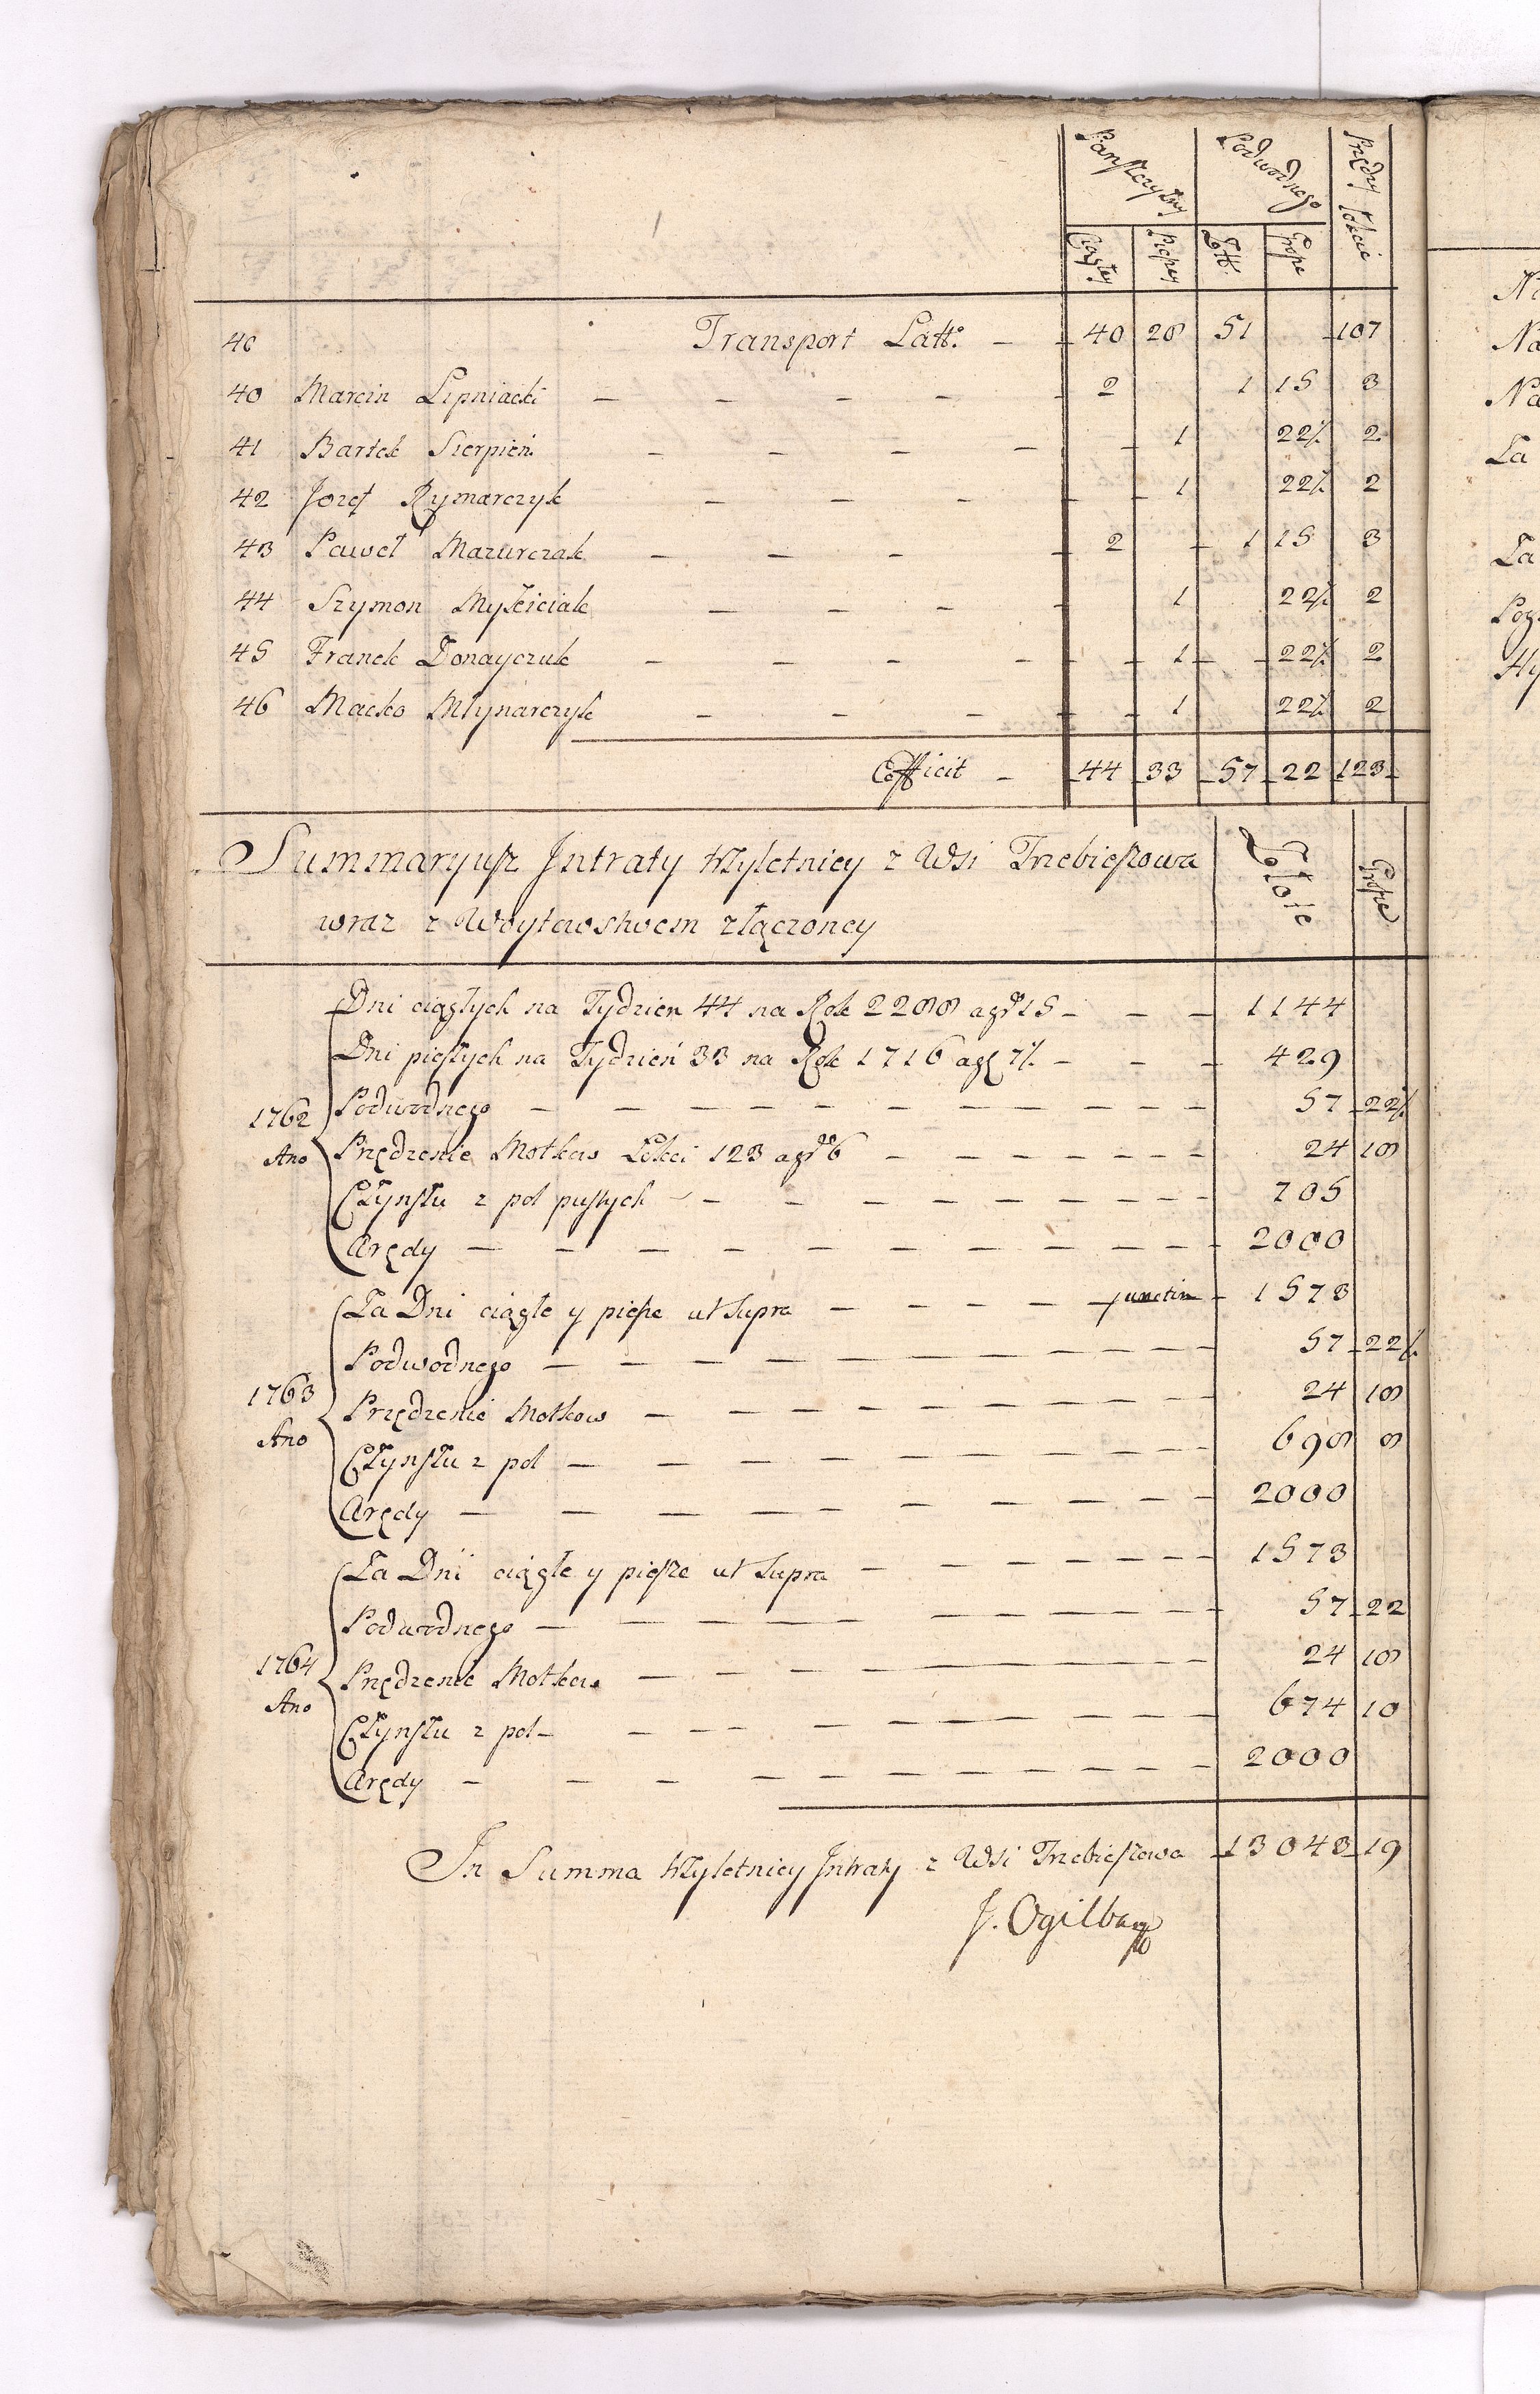 Pańszczyzny Podwodnego Przędzy Łokcie
Ciągłey Pieszey Zott: Grosze
40 Transport Latt: 40 28 51 107
40 Marcin Lipniacki 2 1 15 3
41 Bartek Sierpień 1 22½ 2
42 Jozef Rymarczyk 1 22½ 2
43 Paweł Mazurczak 2 1 15 3
44 Szymon Myściciak 1 22½ 2
45 Franek Donayczuk 1 22½ 2
46 Maćko Młynarczyk 1 22½ 2
Efficit 44 33 57 22 123
Summaryusz Jntraty trzyletniey z Wsi Trzebieszowa Złote Grosze
wraz z Woytowstwem złączoney
Dni ciągłych na Tydzien 44 na Rok 2288 a gr 15 1144
Dni pieszych na Tydzień 33 na Rok 1716 a gr 7½ 429
1762 Podwodnego 57 22½
Ano Przędzenie Motkow Łokci 123 a gr 6 24 18
Czynszu z pol pustych 705
Arędy 2000
Za Dni ciągłe y piesze ut Supra junctim 1573
Podwodnego 57 22½
1763 Przędzenie Motkow 24 18
Ano Czynszu z pol 698 8
Arędy 2000
Za Dni ciągłe y piesze ut Supra 1573
Podwodnego 57 22
1764 Przędzenie Motkow 24 18
Ano Czynszu z pol 674 10
Arędy 2000
In Summa trzyletniey Jntraty z Wsi Trzebieszowa 13043 19
J. Ogilby